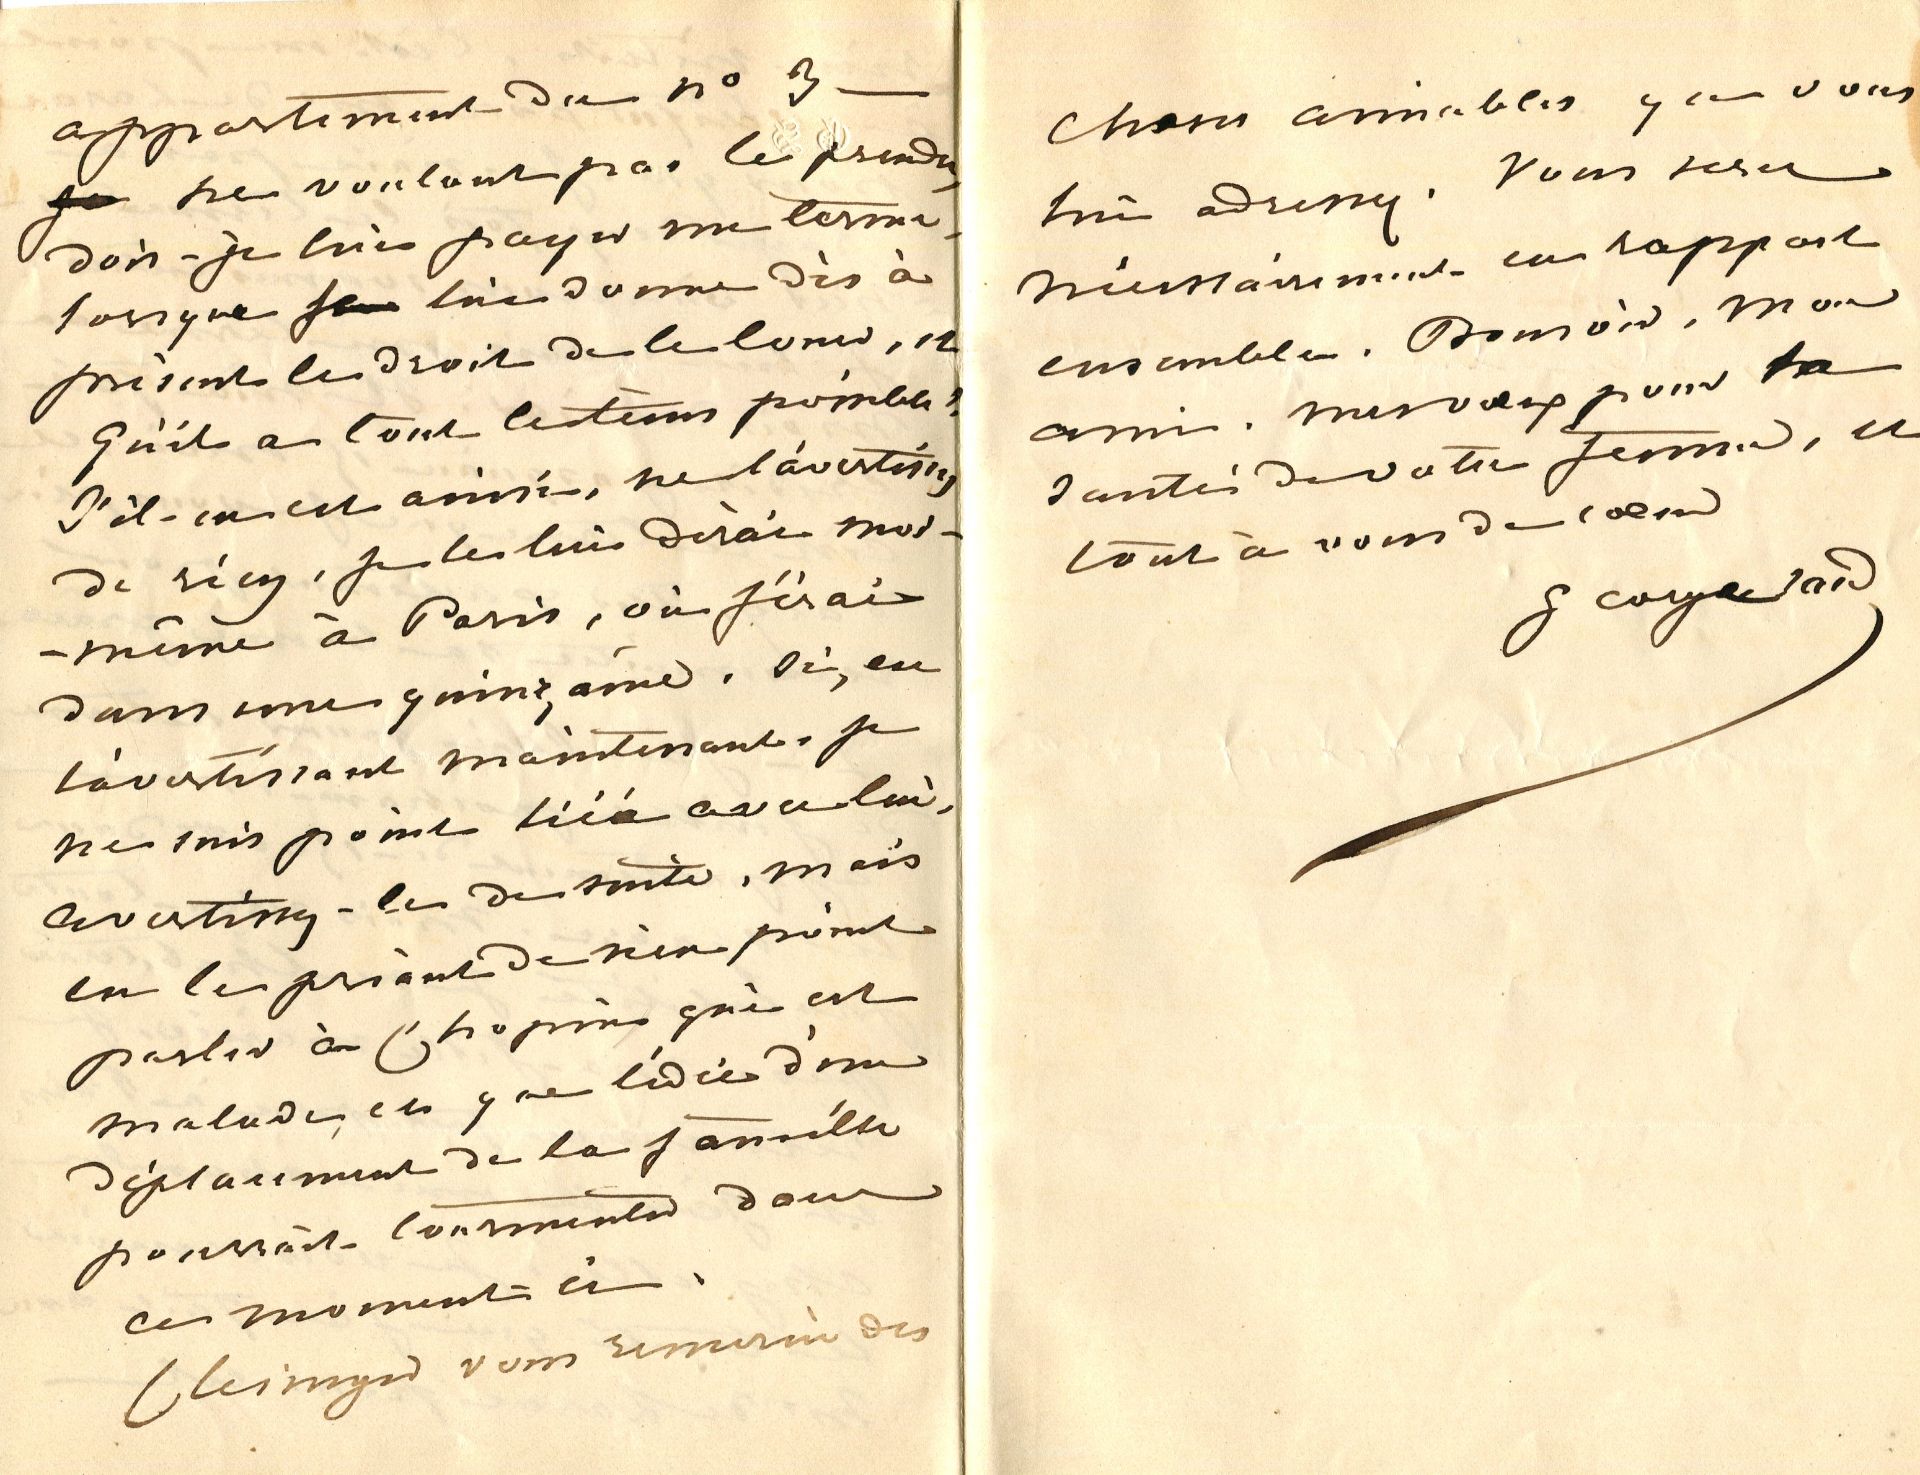 appartement du no 3 —
je ne voulant pas le prendre,
dois-je lui payer un terme,
lorsque je lui donne dès à
présent le droit de le louer, et
qu'il a tout le tems possible?
S'il en est ainsi, ne l'avertissez
de rien, je le lui dirai moi-
-même à Paris, où j'irai
dans une quinzaine. Si, en
l'avertissant maintenant, je
ne suis point liée avec lui,
avertissez-le de suite, mais
en le priant de n'en point
parler à Chopin qui est
malade, et que l'idée d'un
déplacement de la famille
pourrait tourmenter dans
ce moment-ci.
Clésinger vous remercie des
choses aimables que vous
lui adressez. Vous serez
nécessairement en rapport
ensemble. Bonsoir, mon
ami. mes vœux pour la
santé de votre femme, et
tout à vous de cœur
George Sand